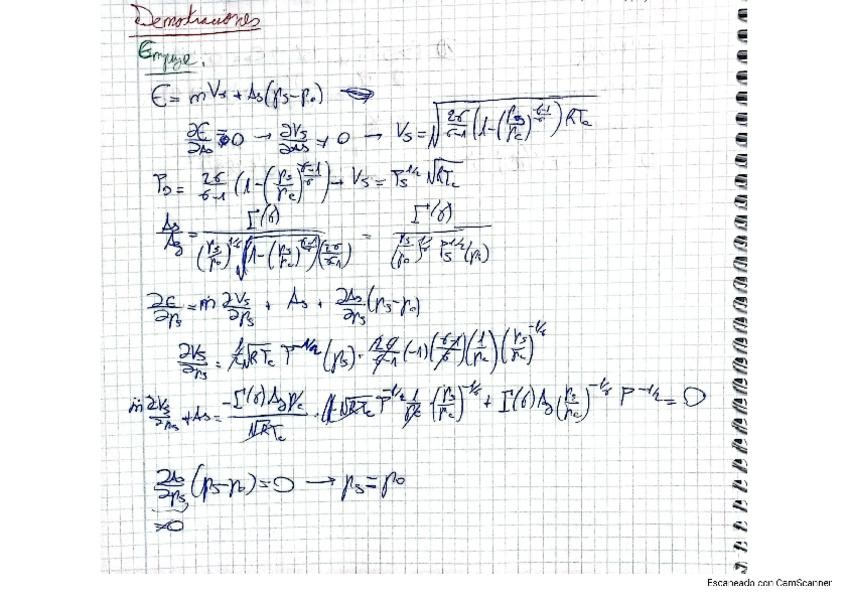 Demostraciones
Empuje.
E = ṁVs + As(ps-p0)
∂E/∂As = 0 → ∂Vs/∂As ≠ 0 → Vs = √(2γ/(γ-1) (1-(ps/pc)^((γ-1)/γ)) RTc)
Ps = 2γ/(γ-1) (1-(ps/pc)^((γ-1)/γ)) → Vs = Ps^(1/2) √RTc
As/Ag = Γ(γ) / ((ps/pc)^(1/γ) √(1-(ps/pc)^((γ-1)/γ))(2γ/(γ-1))) = Γ(γ) / ((ps/pc)^(1/γ) P^(1/2)(ps))
∂E/∂ps = ṁ ∂Vs/∂ps + As + ∂As/∂ps (ps-p0)
∂Vs/∂ps = 1/2 √RTc P^(-1/2) (ps) · 2γ/(γ-1) (-1) ((γ-1)/γ) (1/pc) (ps/pc)^(-1/γ)
ṁ ∂Vs/∂ps + As = -Γ(γ) Ag pc/√RTc · √RTc P^(-1/2) 1/pc (ps/pc)^(-1/γ) + Γ(γ) Ag (ps/pc)^(-1/γ) P^(-1/2) = 0
∂As/∂ps (ps-p0) = 0 → ps = p0
≠0
Escaneado con CamScanner